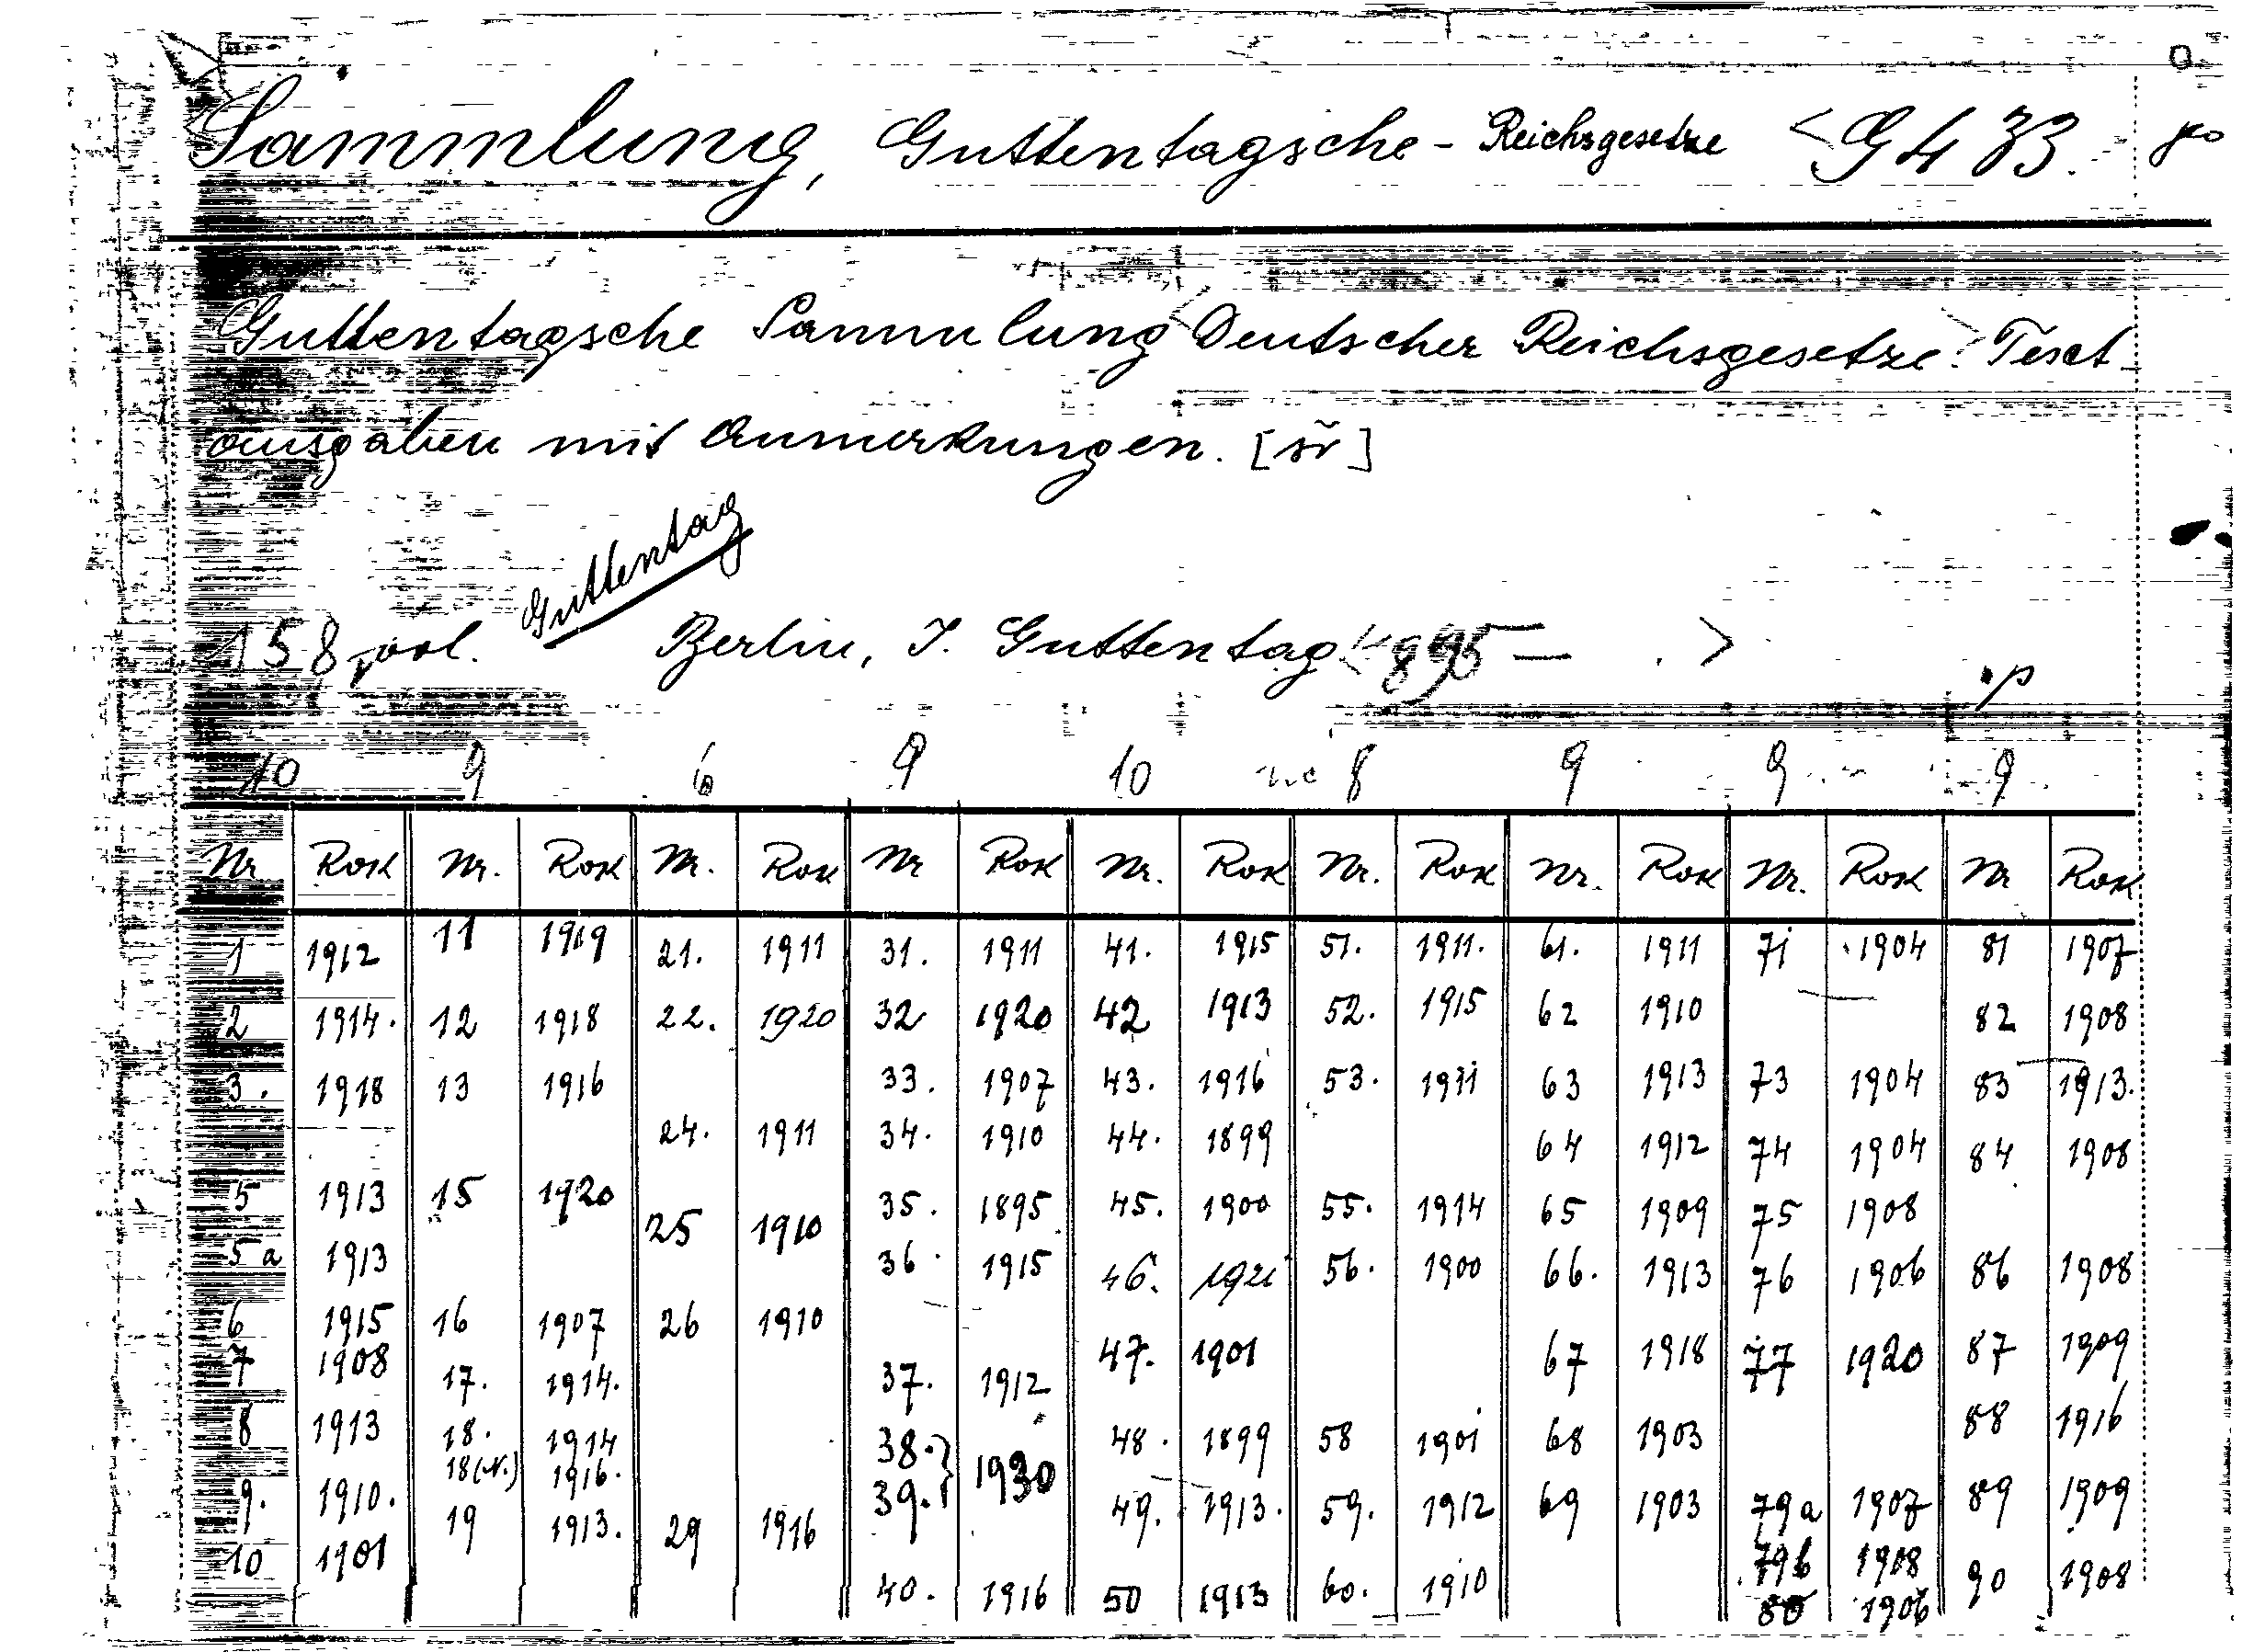 Sammlung, Guttentagsche - Reichsgesetze < G 433.
Guttentagsche Sammlung < Deutscher Reichsgesetze > . Text
ausgaben mit Anmerkungen. [sř]
Guttentag
158 Berlin, J. Guttentag < 1895 — . >
10 9 6 9 10 8 9 9 9
Nr Rok Nr. Rok Nr. Rok Nr Rok Nr. Rok Nr. Rok Nr. Rok Nr. Rok Nr Rok
1 1912 11 1919 21. 1911 31. 1911 41. 1915 51. 1911. 61. 1911 71 1904 81 1907
2 1914. 12 1918 22. 1920 32 1920 42 1913 52. 1915 62 1910 82 1908
3. 1918 13 1916 33. 1907 43. 1916 53. 1911 63 1913 73 1904 83 1913.
24. 1911 34. 1910 44. 1899 64 1912 74 1904 84 1908
5 1913 15 1920 25 1910 35. 1895 45. 1900 55. 1914 65 1909 75 1908
5a 1913 36. 1915 46. 1921 56. 1900 66. 1913 76 1906 86 1908
6 1915 16 1907 26 1910 47. 1901 67 1918 77 1920 87 1909
7 1908 17. 1914. 37. 1912
8 1913 18. 1914 38. } 1930 48. 1899 58 1901 68 1903 88 1916
18(N.) 1916.
9. 1910. 19 1913. 29 1916 39. 49. 1913. 59. 1912 69 1903 79a 1907 89 1909
10 1901 79b 1908
40. 1916 50 1913 60. 1910 80 1906 90 1908